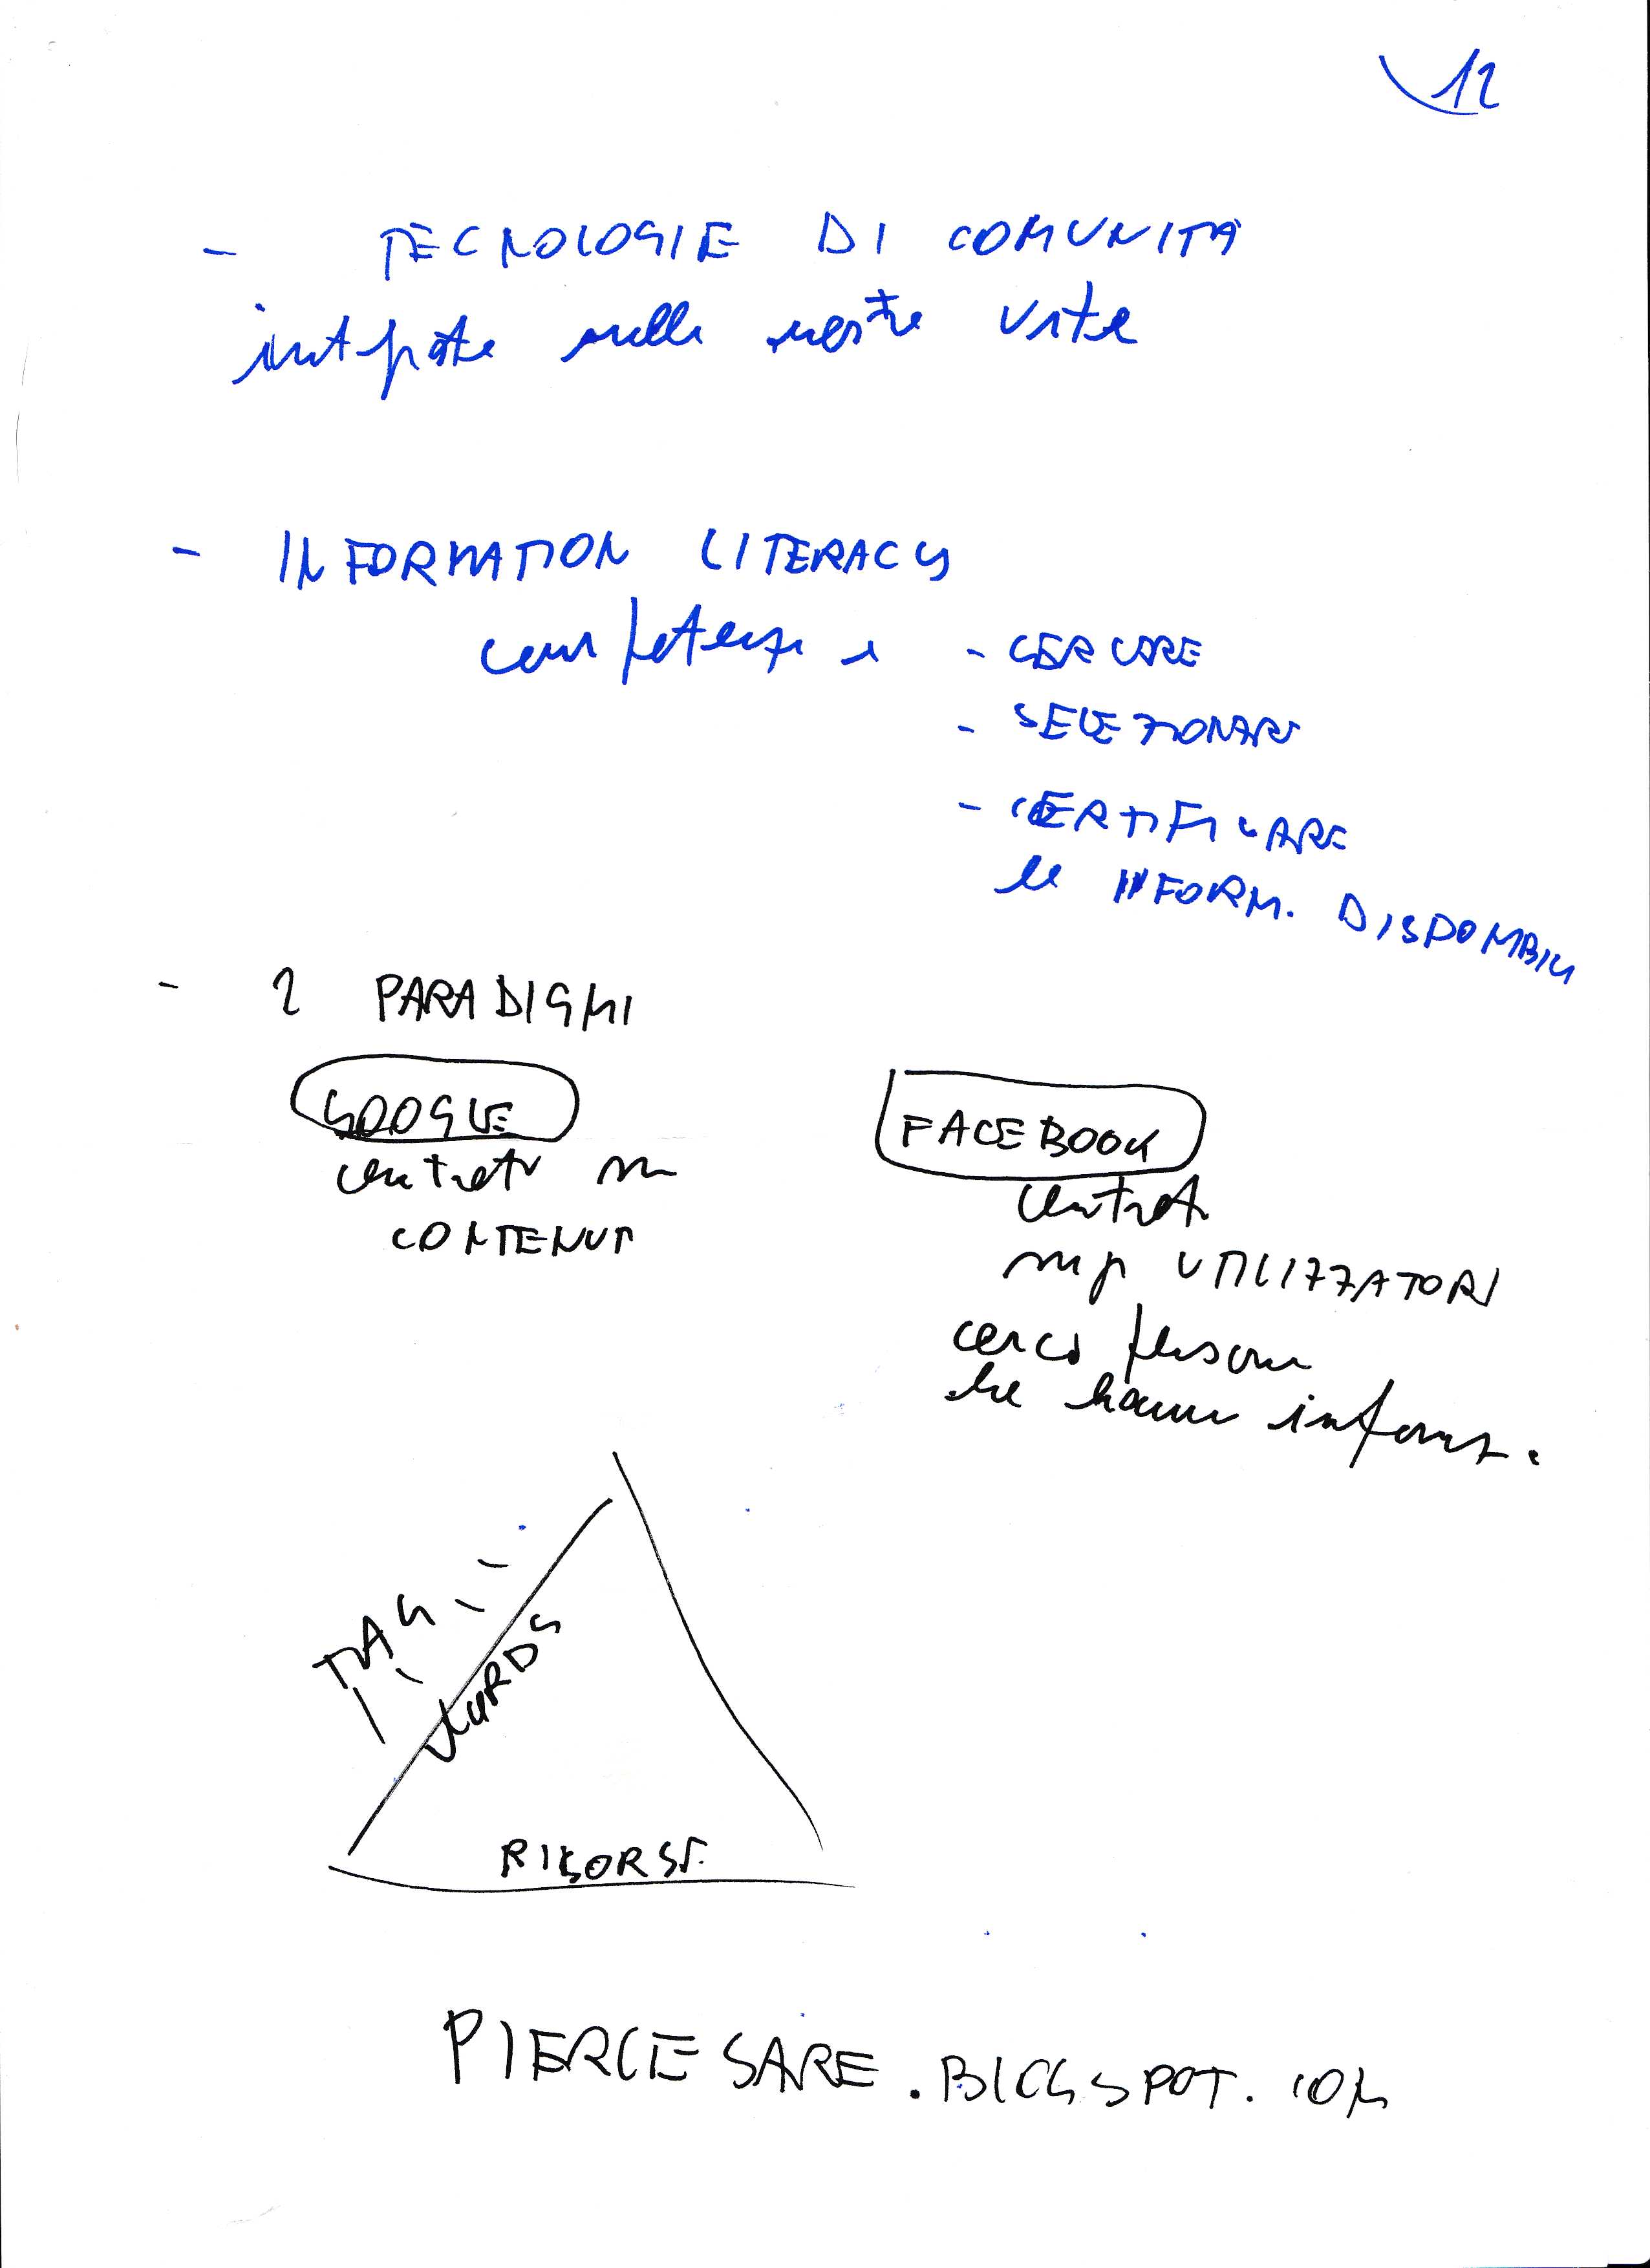 12
- TECNOLOGIE DI COMUNITÀ
integrate nelle nostre vite
- INFORMATION LITERACY
competenze - CERCARE
- SELEZIONARE
- CERTIFICARE
le INFORM. DISPONIBILI
- 2 PARADIGMI
GOOGLE FACEBOOK
centrato su centrato
CONTENUTI
sugli UTILIZZATORI
cerco persone
che hanno inform.
TAG
WORDS
RISORSE
PIERCESARE.BLOGSPOT.COM